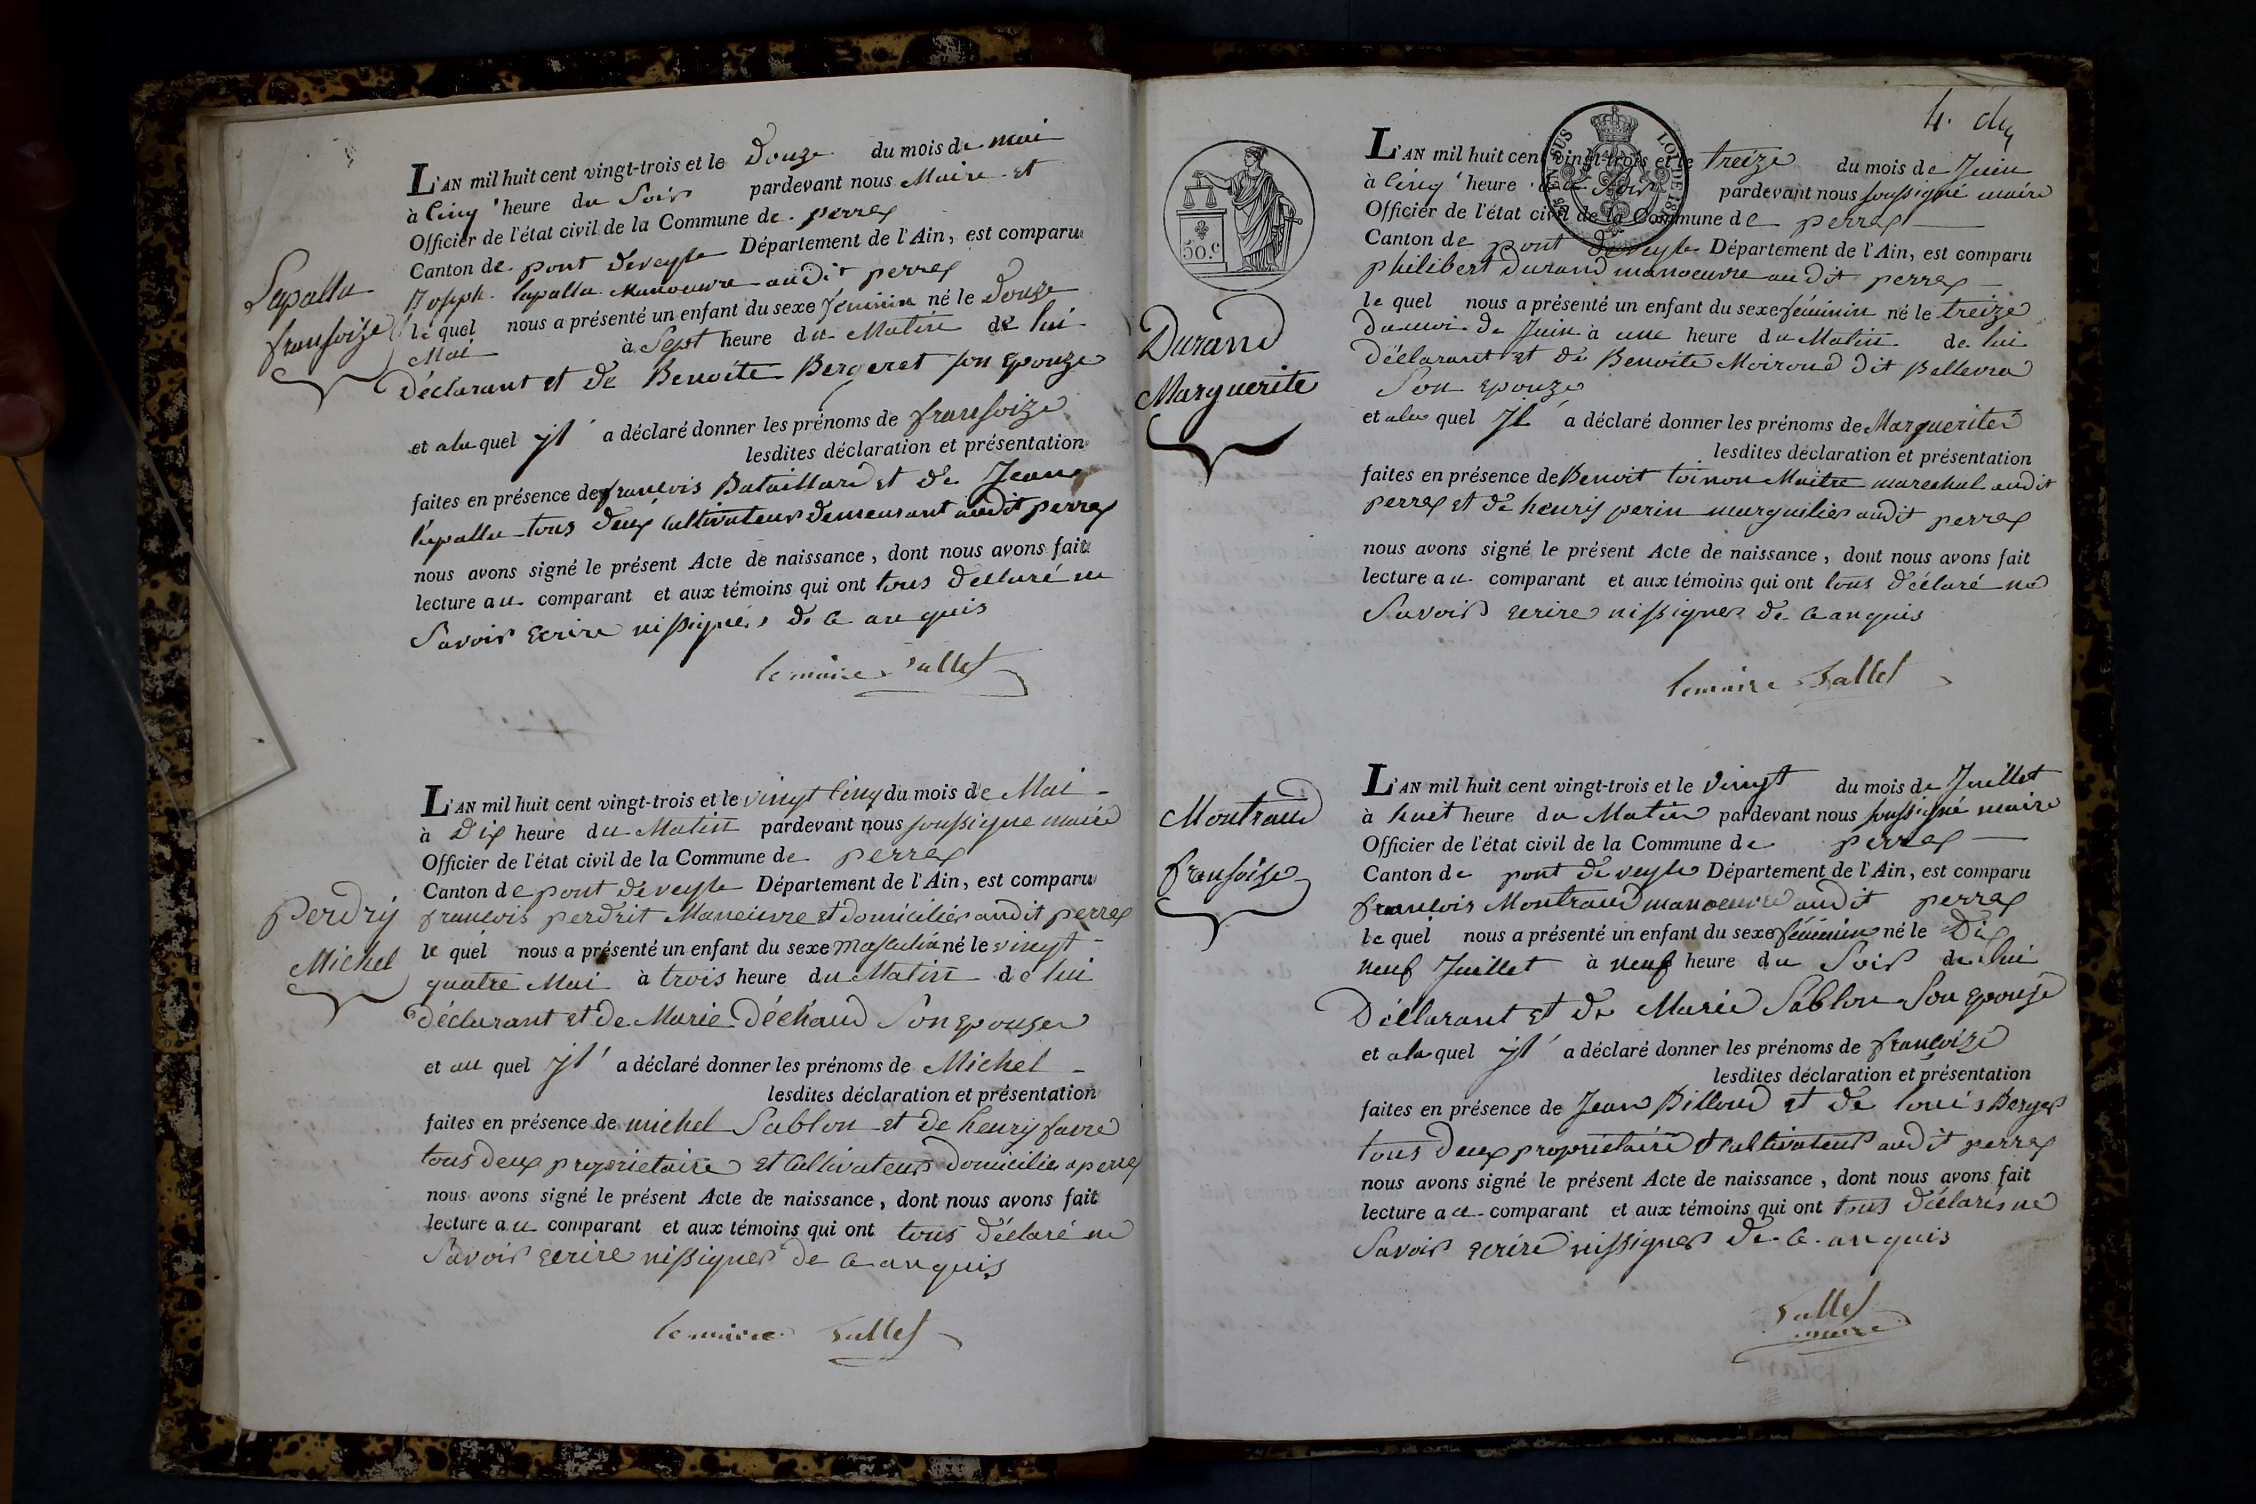 Lapalla
fransoize
L'AN mil huit cent vingt-trois et le Douze du mois de mai
à Cinq heure du Soir pardevant nous Maire et
Officier de l'état civil de la Commune de perrex
Canton de pont deveyle Département de l'Ain, est comparu
Joseph lapalla Manoeuvre audit perrex
le quel nous a présenté un enfant du sexe féminin né le Douze
Mai à Sept heure du Matin de lui
Déclarant et de Benoite Bergeret son Epouze
et ala quel jl a déclaré donner les prénoms de fransoize
lesdites déclaration et présentation
faites en présence de francois Bataillard et de Jean
lapalla tous deux Cultivateur demeurant audit perrex
nous avons signé le présent Acte de naissance, dont nous avons fait
lecture au comparant et aux témoins qui ont tous déclaré ne
Savoir Ecrire nissigner de Ce anquis
le maire Vallet
perdrij
Michel
L'AN mil huit cent vingt-trois et le vingt Cinq du mois de Mai
à Dix heure du Matin pardevant nous soussigne maire
Officier de l'état civil de la Commune de perrex
Canton de pont deveyle Département de l'Ain, est comparu
francois perdrit Maneuvre et domicilier audit perrex
le quel nous a présenté un enfant du sexe masculin né le vingt
quatre Mai à trois heure du Matin de lui
déclarant et de Marie Déchaud Son epouze
et au quel jl a déclaré donner les prénoms de Michel
lesdites déclaration et présentation
faites en présence de michel Sablon et de henrij favre
tous deux proprietaire et Cultivateur domicilies a perrex
nous avons signé le présent Acte de naissance, dont nous avons fait
lecture au comparant et aux témoins qui ont tous déclaré ne
Savoir Ecrire nissigner de Ce anquis
le maire Vallet
4.
50.c
EN SUS LOI DE 18
Durand
Marguerite
L'AN mil huit cent vingt-trois et le treize du mois de Juin
à Cinq heure du Soir pardevant nous soussigné maire
Officier de l'état civil de la Commune de perrex
Canton de pont deveyle Département de l'Ain, est comparu
philibert Durand manoeuvre audit perrex
le quel nous a présenté un enfant du sexe féminin né le treize
du moi de Juin à une heure du Matin de lui
Déclarant et de Benoite Moiroud dit Bellevra
Son epouze
et ala quel Jl a déclaré donner les prénoms de Marguerite
lesdites déclaration et présentation
faites en présence de Benoit toinon Maitre marechal audit
perrex et de henrij perin marguilier audit perrex
nous avons signé le présent Acte de naissance, dont nous avons fait
lecture au comparant et aux témoins qui ont tous déclaré ne
Savoir ecrire nissigner de Ce anquis
le maire Vallet
Montraud
fransoise
L'AN mil huit cent vingt-trois et le Vingt du mois de Juillet
à huit heure du Matin pardevant nous soussigné maire
Officier de l'état civil de la Commune de perrex
Canton de pont de veyle Département de l'Ain, est comparu
francois Montraud manoeuvre audit perrex
le quel nous a présenté un enfant du sexe féminin né le Dix
neuf Juillet à neuf heure du Soir de lui
Déclarant et de Marie Sablon Son epouse
et ala quel jl a déclaré donner les prénoms de francoize
lesdites déclaration et présentation
faites en présence de Jean Billoud et de louis Berger
tous deux proprietaire et cultivateur audit perrex
nous avons signé le présent Acte de naissance, dont nous avons fait
lecture au comparant et aux témoins qui ont tous déclaré ne
Savoir ecrire nissigner de Ce anquis
Vallet
maire